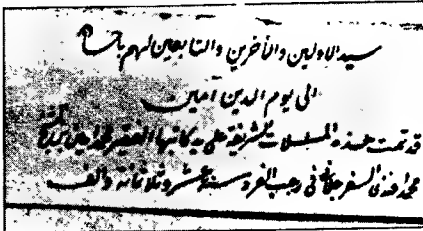 سيد الاولين والآخرين والتابعين لهم باحسان
الى يوم الدين آمين
قد تمت هذه المسلسلات الشريفة على يد كاتبها الفقير محمد امين بن
محمد افندى السفرجلانى فى رجب الفرد سنة عشر وثلاثمائة والف